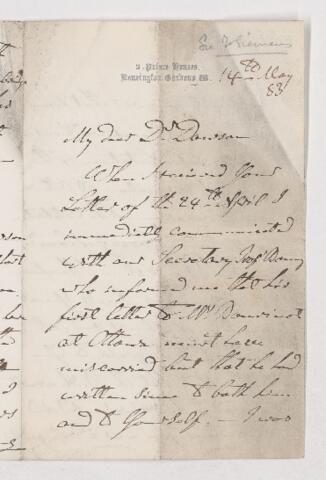 Sir W Siemens
3, Palace Houses,
Kensington Gardens. W.
14th May
83
My dear Dr. Dawson
When I received your
Letter of the 24th April I
immediately communicated
with our Secretary
who informed me that his
first letter to Mr
at Ottawa must have
miscarried but that he had
written since to both him
and to yourself. — I was